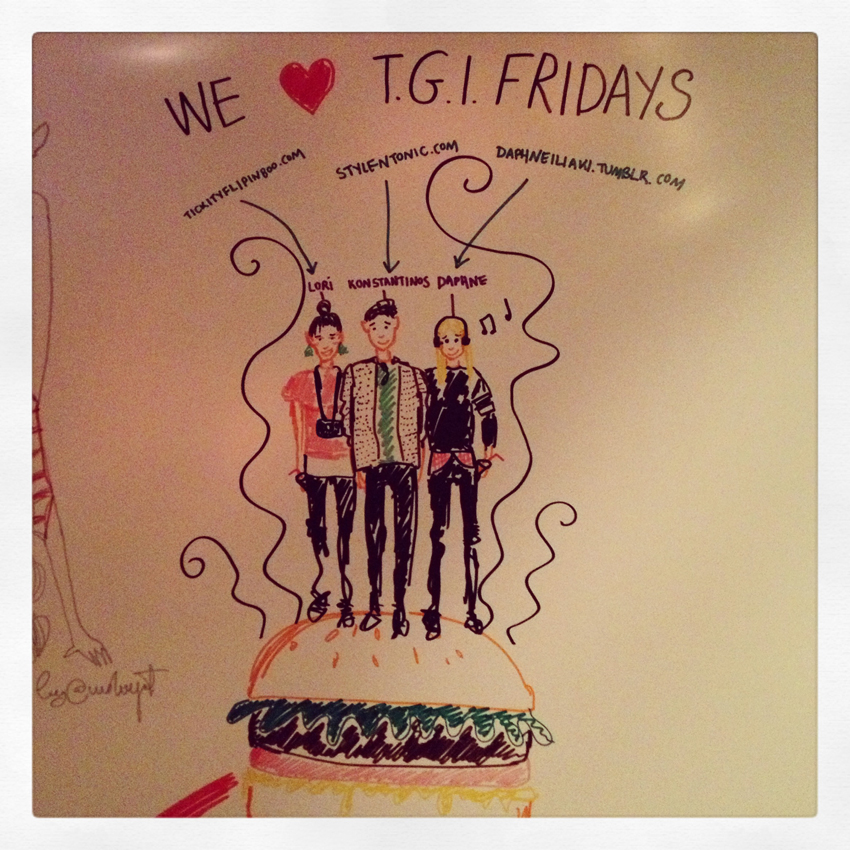 WE ♥ T.G.I. FRIDAYS
TICKITYFLIPINBOO.COM
STYLENTONIC.COM
DAPHNEILIAKI.TUMBLR.COM
LORI KONSTANTINOS DAPHNE